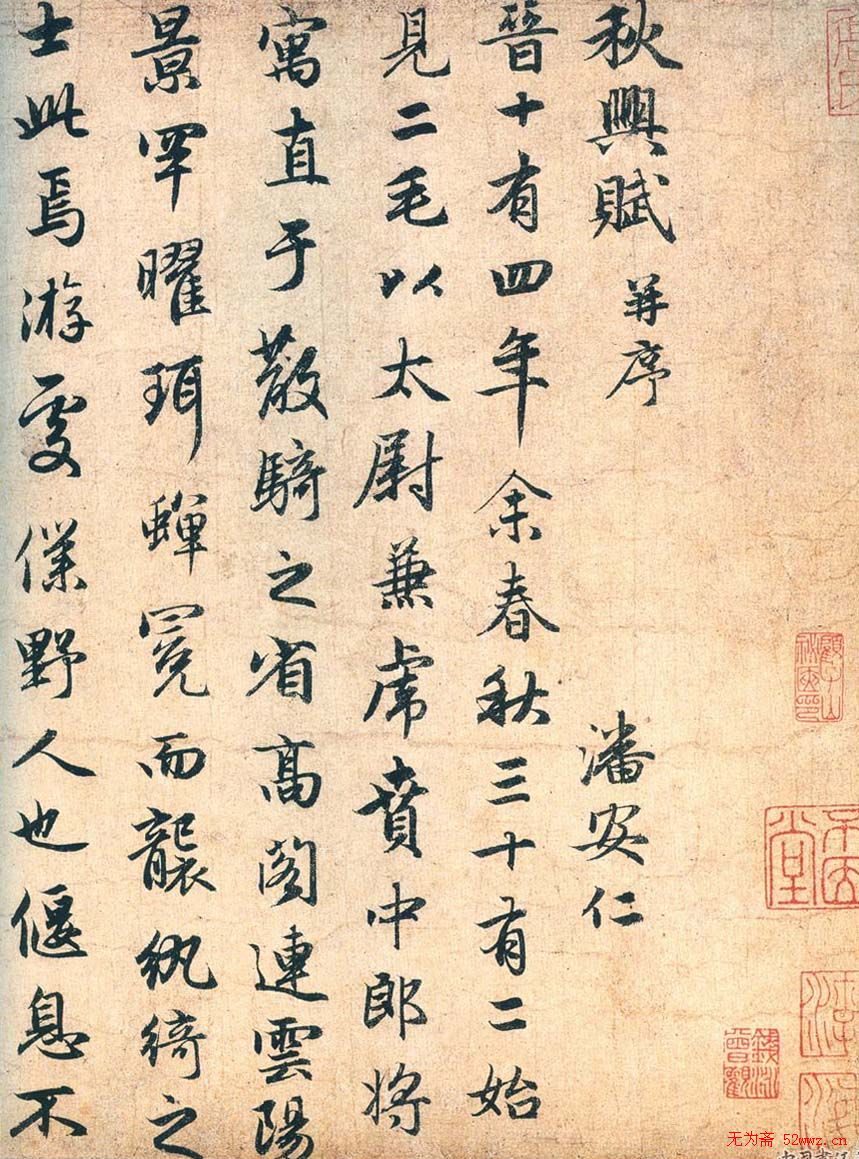 秋興賦 并序 潘安仁
晉十有四年余春秋三十有二始
見二毛以太尉兼虎賁中郎將
寓直于散騎之省高閣連雲陽
景罕曜珥蟬冕而襲紈綺之
士此焉游處僕野人也偃息不
無为斋 52wwz.cn